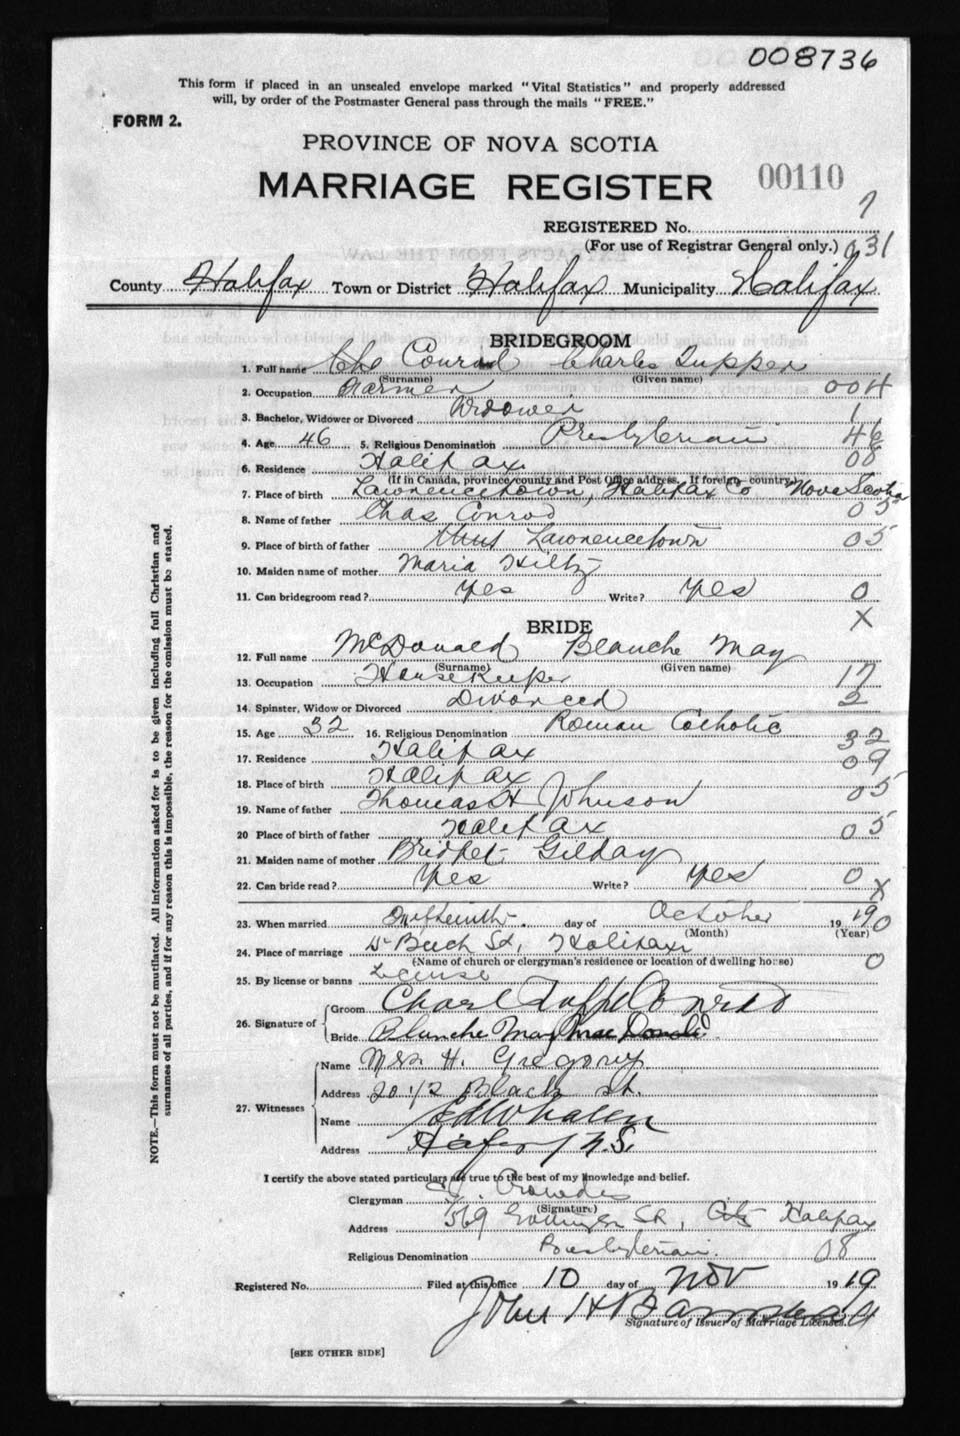 008736
This form if placed in an unsealed envelope marked "Vital Statistics" and properly addressed
will, by order of the Postmaster General pass through the mails "FREE."
FORM 2.
PROVINCE OF NOVA SCOTIA
MARRIAGE REGISTER 00110
REGISTERED No. 7
(For use of Registrar General only.) 031
County Halifax Town or District Halifax Municipality Halifax
BRIDEGROOM
1. Full name Conrad Charles Tupper
(Surname) (Given name)
2. Occupation Farmer 004
3. Bachelor, Widower or Divorced Widower 1
4. Age 46 5. Religious Denomination Presbyterian 46
6. Residence Halifax 08
(If in Canada, province county and Post Office address. If foreign country)
7. Place of birth Lawrencetown, Halifax Co Nova Scotia
8. Name of father Chas Conrod 05
9. Place of birth of father Lawrencetown 05
10. Maiden name of mother Maria Hiltz
11. Can bridegroom read? Yes Write? Yes 0
BRIDE X
12. Full name McDonald Blanche May
(Surname) (Given name)
13. Occupation Housekeeper 17
14. Spinster, Widow or Divorced Divorced 3
15. Age 32 16. Religious Denomination Roman Catholic 32
17. Residence Halifax 09
18. Place of birth Halifax 05
19. Name of father Thomas H Johnson
20 Place of birth of father Halifax 05
21. Maiden name of mother Bridget Gilday
22. Can bride read? Yes Write? Yes 0 X
23. When married day of October 19 19 0
(Month) (Year)
24. Place of marriage St, Halifax
(Name of church or clergyman's residence or location of dwelling house) 0
25. By license or banns License
26. Signature of Groom Conrad
Bride Blanche May Mac Donald
27. Witnesses Name Mrs. H. Gregory
Address 20 1/2 Black St.
Name Whalen
Address N.S.
I certify the above stated particulars are true to the best of my knowledge and belief.
Clergyman
(Signature)
Address 569 St, Halifax
Religious Denomination Presbyterian. 08
Registered No. Filed at this office 10 day of Nov 19 19
John H
Signature of Issuer of Marriage Licenses.
[SEE OTHER SIDE]
NOTE.—This form must not be mutilated. All information asked for is to be given including full Christian and
surnames of all parties, and if for any reason this is impossible, the reason for the omission must be stated.